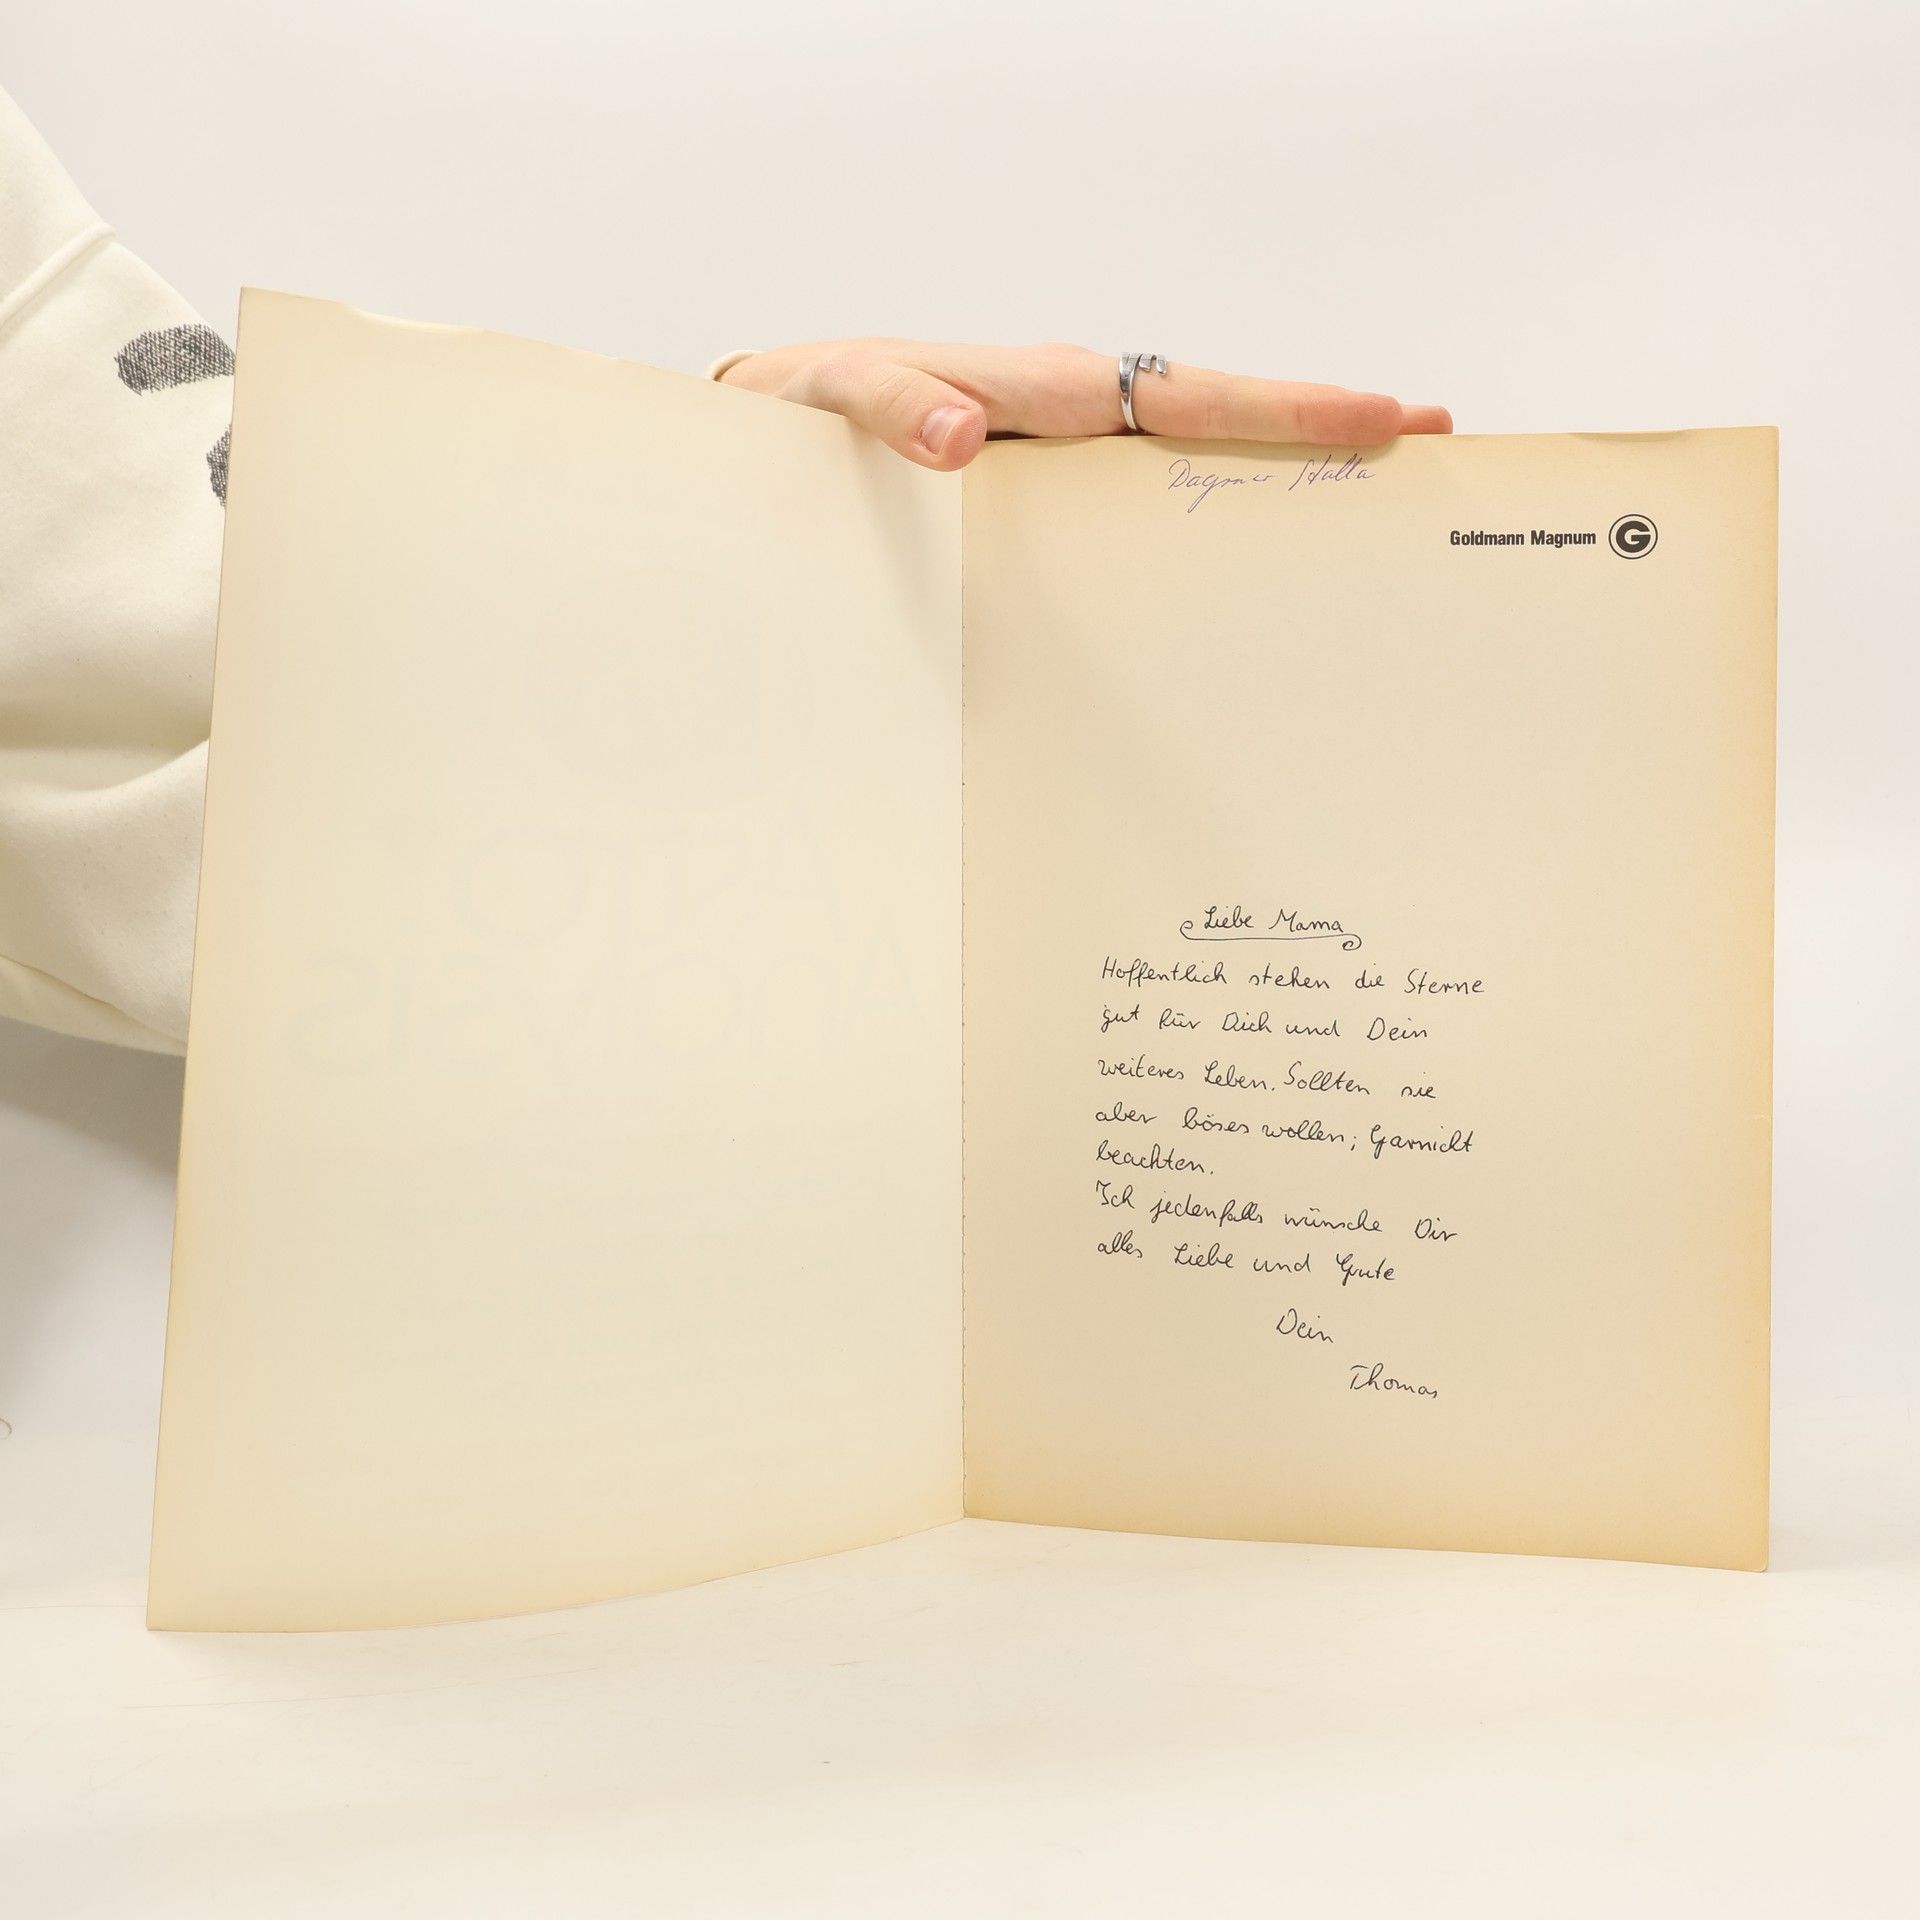 Dagmar Halla
Goldmann Magnum G
Liebe Mama
Hoffentlich stehen die Sterne
gut für Dich und Dein
weiteres Leben. Sollten sie
aber böses wollen; Garnicht
beachten.
Ich jedenfalls wünsche Dir
alles Liebe und Gute
Dein
Thomas